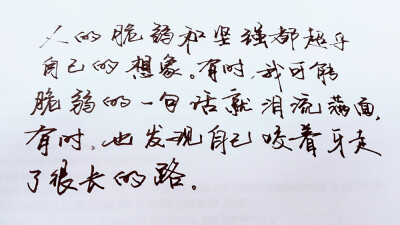 人的脆弱和坚强都超乎
自己的想象。有时,我可能
脆弱的一句话就泪流满面,
有时,也发现自己咬着牙走
了很长的路。